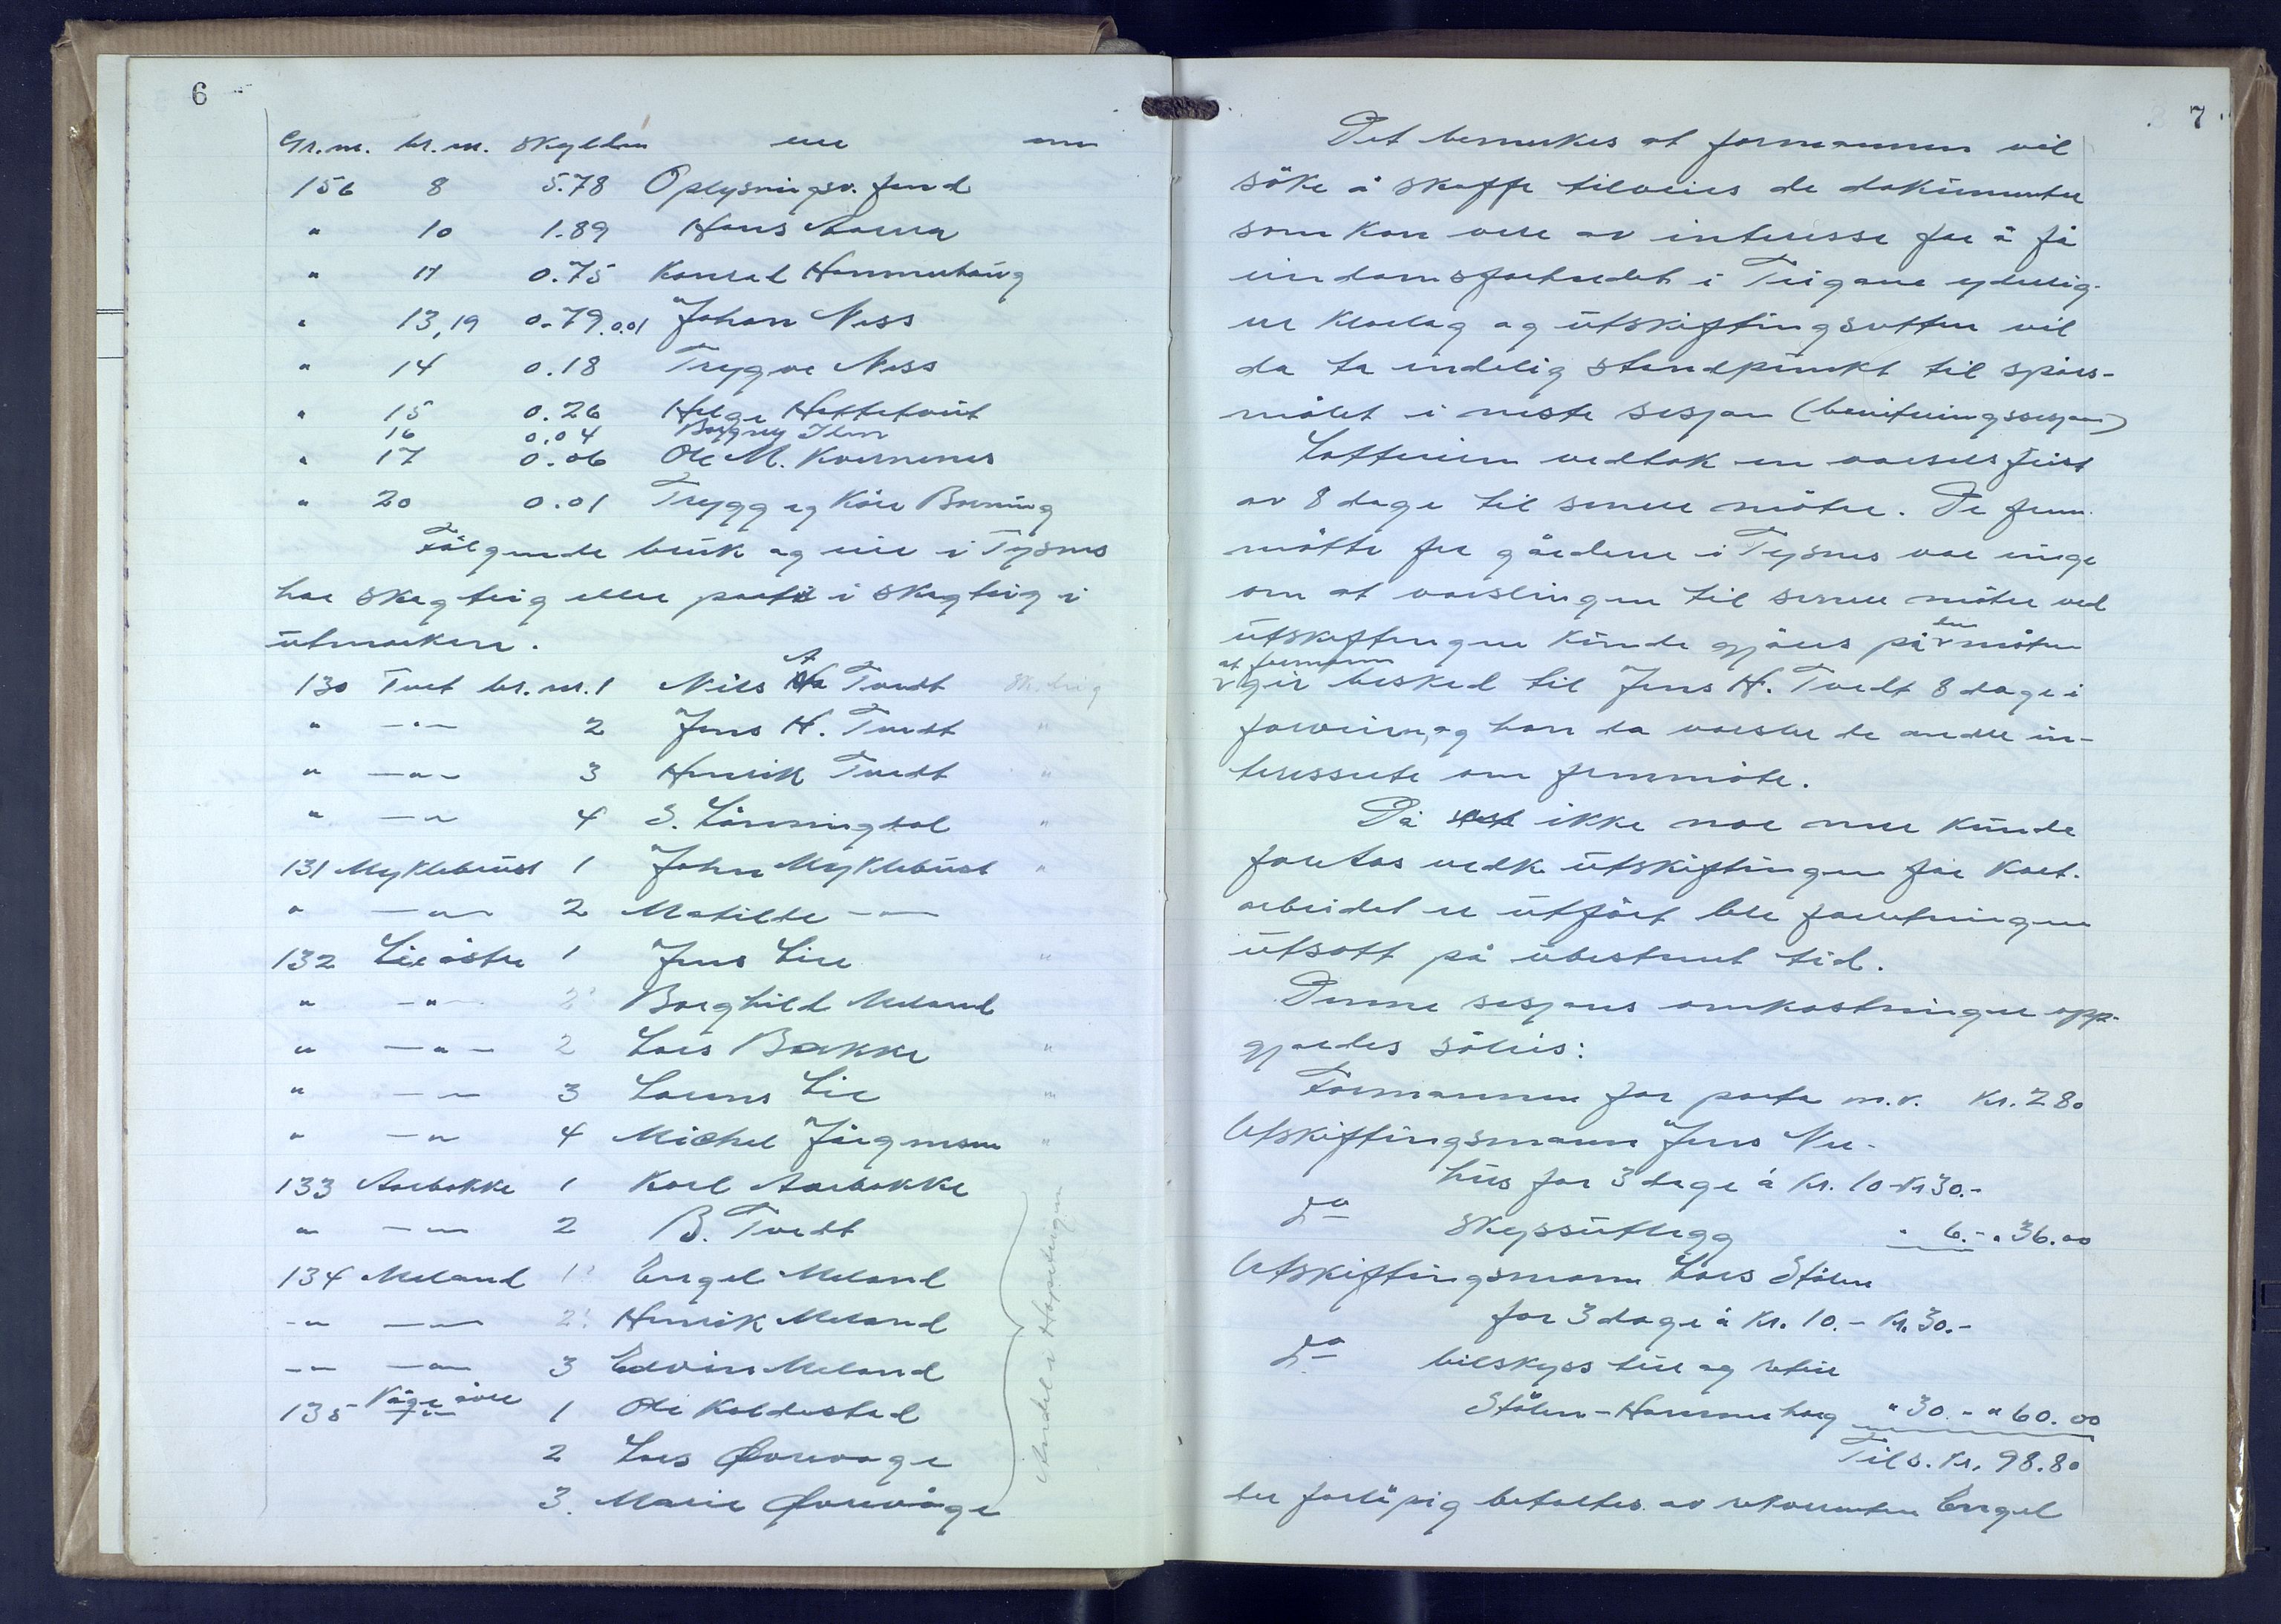 6
Gr.nr. br.nr. skylden eier mm
156 8 5.78 Oplysningsv. fond
" 10 1.89 Hans
" 11 0.75 Konrad Hammerhaug
" 13,19 0.79 0.01 Johan Ness
" 14 0.18 Trygve Ness
" 15 0.26 Helge Hettetveit
16 0.04 Borgny
" 17 0.06 Ole M. Kvernenes
" 20 0.01 Trygg og Kåre
Følgende bruk og eier i Tysnes
har skogteig eller part i skogteig i
utmarken.
130 Tvet br.nr. 1 Nils A Tvedt sk.teig
" -"- 2 Jens H. Tvedt "
" -"- 3 Henrik Tvedt "
" -"- 4 S. Lönningdal "
131 Myklebust 1 John Myklebust "
" -"- 2 Matilde -"-
132 Lie östre 1 Jens Lie "
" -"- 2 Borghild Meland
" -"- 2 Lars Bakke "
" -"- 3 Laurens Lie "
" -"- 4 Michel Jörgensen "
133 Aarbakke 1 Karl Aarbakke
" -"- 2 B. Tvedt
134 Meland 1 Engel Meland
-"- -"- 2 Henrik Meland
-"- -"- 3 Edvin Meland
135 Våge övre 1 Ole Koldestad
2 Lars Øvrevage
3. Marie Øvrevåge
Andel i
7
Det bemerkes at formannen vil
söke å skaffe tilveies de dokumenter
som kan vere av interesse for å få
eiendomsforholdet i Teigane yderlig-
ere klarlag og utskiftingsretten vil
da ta endelig standpunkt til spörs-
målet i neste sesjon (boniteringssesjon)
Lotteiern vedtok en varselsfrist
av 8 dage til senere möter. De frem-
mötte for gårdene i Tysnes var enige
om at varslingen til senere möter ved
utskiftingen kunde gjöres på den måten
at formannen gir besked til Jens H. Tvedt 8 dage i
forveien, og han da varsler de andre in-
teresserte om fremmöte.
Da ikke noe mer kunde
foretas vedk utskiftingen för kart-
arbeidet er utfört ble forretningen
utsatt på ubestemt tid.
Denne sesjons omkostninger opp-
gjordes såleis:
Formannen for porto m.v. Kr. 2.80
Utskiftingsmann Jens Ner-
hus for 3 dage á Kr. 10 Kr 30.-
do skyssutlegg " 6.- " 36.00
Utskiftingsmann Lars Stölen
for 3 dage á Kr. 10.- Kr. 30.-
do bilskyss til og retur
Stölen-Hammerhaug " 30.- " 60.00
Tils. Kr. 98.80
der forlöpig betaltes av rekvirenten Engel